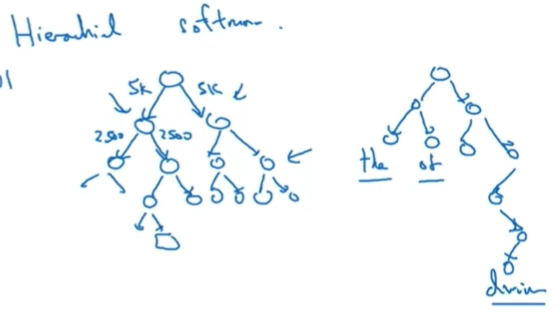 Hierachial softmax.
5K 5K
2500 2500
the of